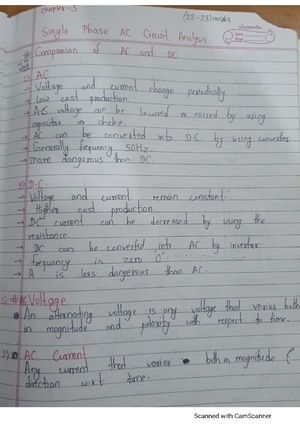 chapter-3
(22-23) marks
Single Phase AC Circuit Analysis
classmate
Comparison of AC and DC
1) AC
→ Voltage and current change periodically
→ Low cost production
→ A.C voltage can be lowered or raised by using
capacitor or choke.
→ AC can be converted into D.C by using converter
→ Generally frequency 50Hz.
→ more dangerous than DC.
2) D.C.
→ Voltage and current remain constant.
→ Higher cost production
→ DC current can be decreased by using the
resistance.
→ DC can be converted into AC by invertor
→ frequency is zero '0'.
→ It is less dangerous than AC.
1) # AC Voltage
• An alternating voltage is any voltage that varies both
in magnitude and polarity with respect to time.
2) • AC Current
Any current that varies both in magnitude &
direction w.r.t. time.
Scanned with CamScanner